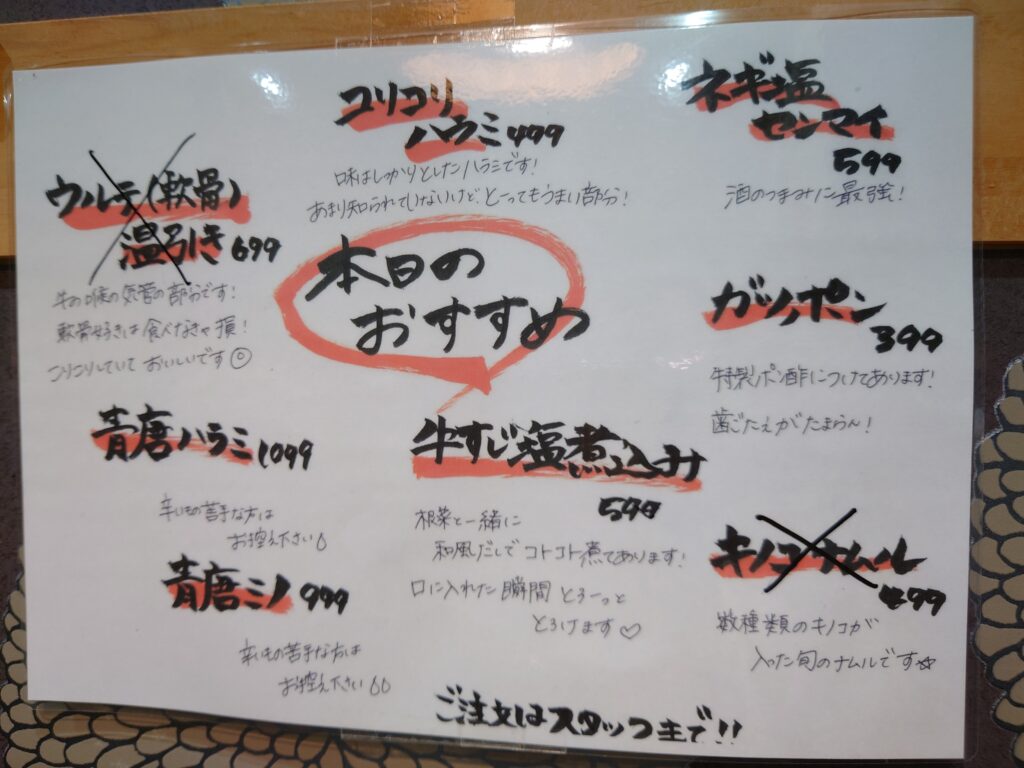 本日の
おすすめ
コリコリ
ハラミ 499
味はしっかりとしたハラミです!
あまり知られていないけど、とってもうまい部分!
ネギ塩
センマイ
599
酒のつまみに最強!
ウルテ(軟骨)
塩引き 699
牛の喉の気管の部分です!
軟骨好きは食べなきゃ損!
コリコリしていておいしいです◎
ガツポン
399
特製ポン酢につけてあります!
歯ごたえがたまらん!
青唐ハラミ 1099
辛いもの苦手な方は
お控え下さい
牛すじ塩煮込み
599
根菜と一緒に
和風だしでコトコト煮てあります!
口に入れた瞬間とろーっと
とろけます♡
青唐ミノ 999
辛いもの苦手な方は
お控え下さい
キノコナムル
499
数種類のキノコが
入った旬のナムルです☆
ご注文はスタッフまで!!